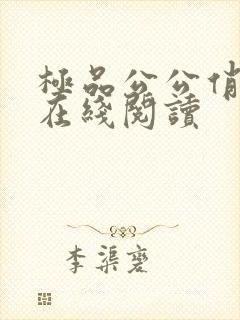 極品公公俏
在綫閱讀
李渠褒